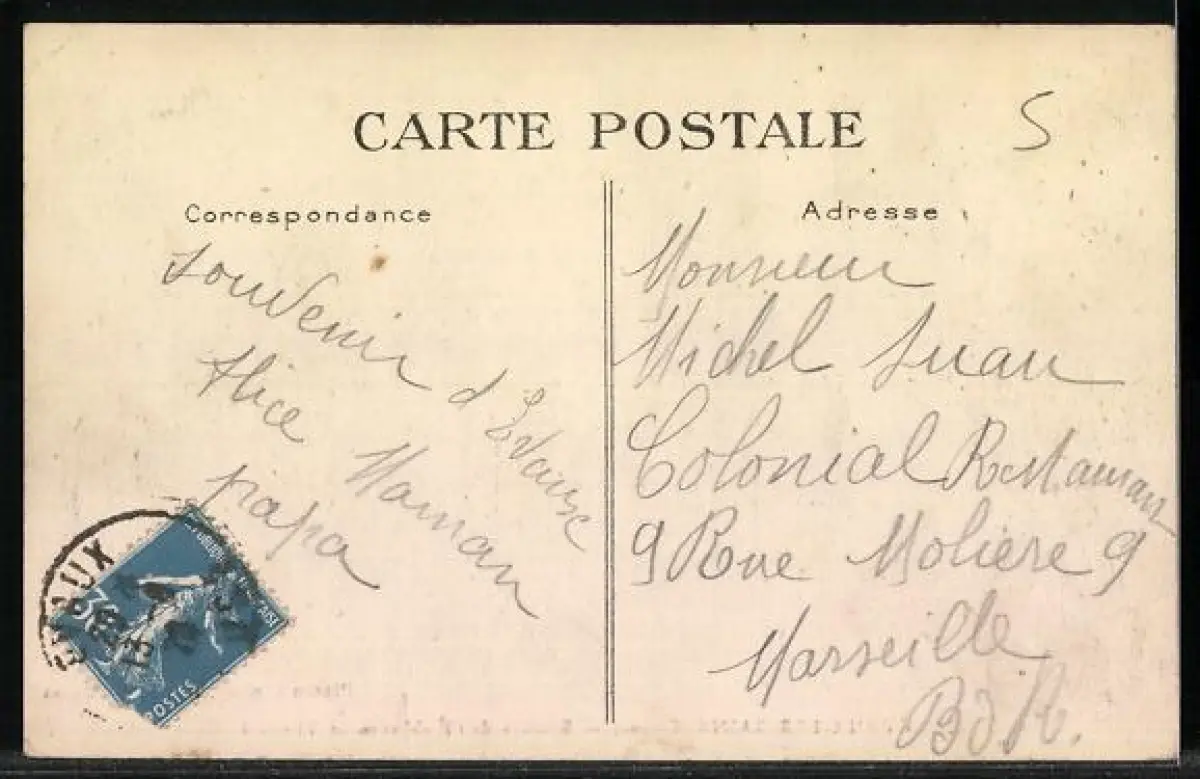 CARTE POSTALE
S
Correspondance
Souvenir d'Evaux
Alice Maman
papa
Adresse
Monsieur
Michel Juan
Colonial Restaurant
9 Rue Moliere 9
Marseille
B d R.
EVAUX
POSTES